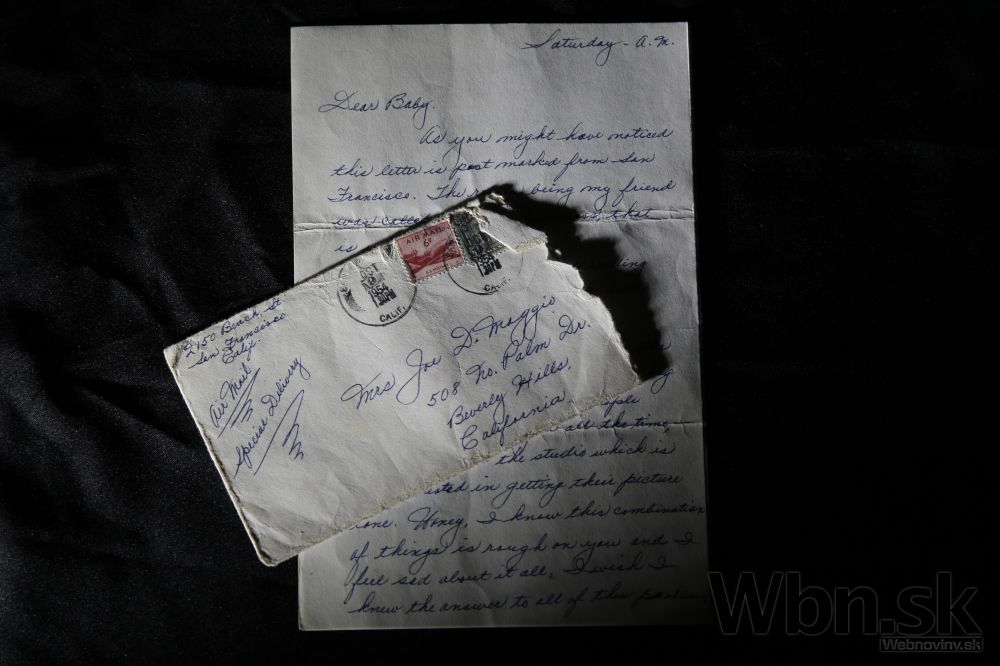 Saturday - A.M.
Dear Baby,
As you might have noticed
this letter is post marked from San
Francisco. The being my friend
was called that
is
2150 Beach St.
San Francisco
Calif.
Air Mail
Special Delivery
AIR MAIL
6¢
OCT
1954
CALIF.
CALIF.
Mrs Joe Di Maggio
508 No. Palm Dr.
Beverly Hills,
California
all the time,
the studio which is
in getting their picture
Honey, I know this combination
of things is rough on you and I
feel sad about it all. I wish I
knew the answer to all of these
Wbn.sk
Webnoviny.sk